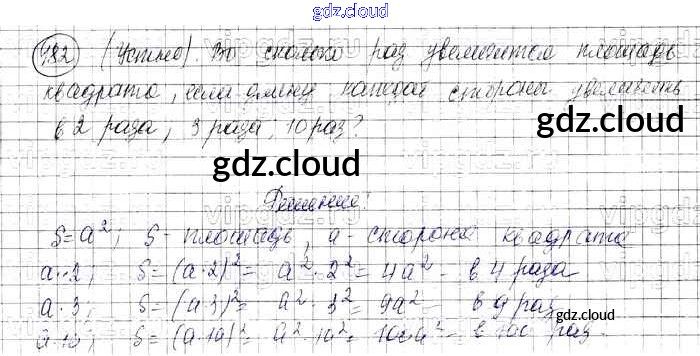 gdz.cloud
482 (Устно). Во сколько раз увеличится площадь
квадрата, если длину каждой стороны увеличить
в 2 раза, 3 раза, 10 раз?
gdz.cloud
gdz.cloud
Решение:
S=a²; S- площадь, a- сторона квадрата
a·2; S=(a·2)²= a²·2²= 4a² - в 4 раза
a·3; S=(a·3)²= a²·3²= 9a² - в 9 раз
gdz.cloud
a·10; S=(a·10)²= a²·10²= 100a² - в 100 раз.